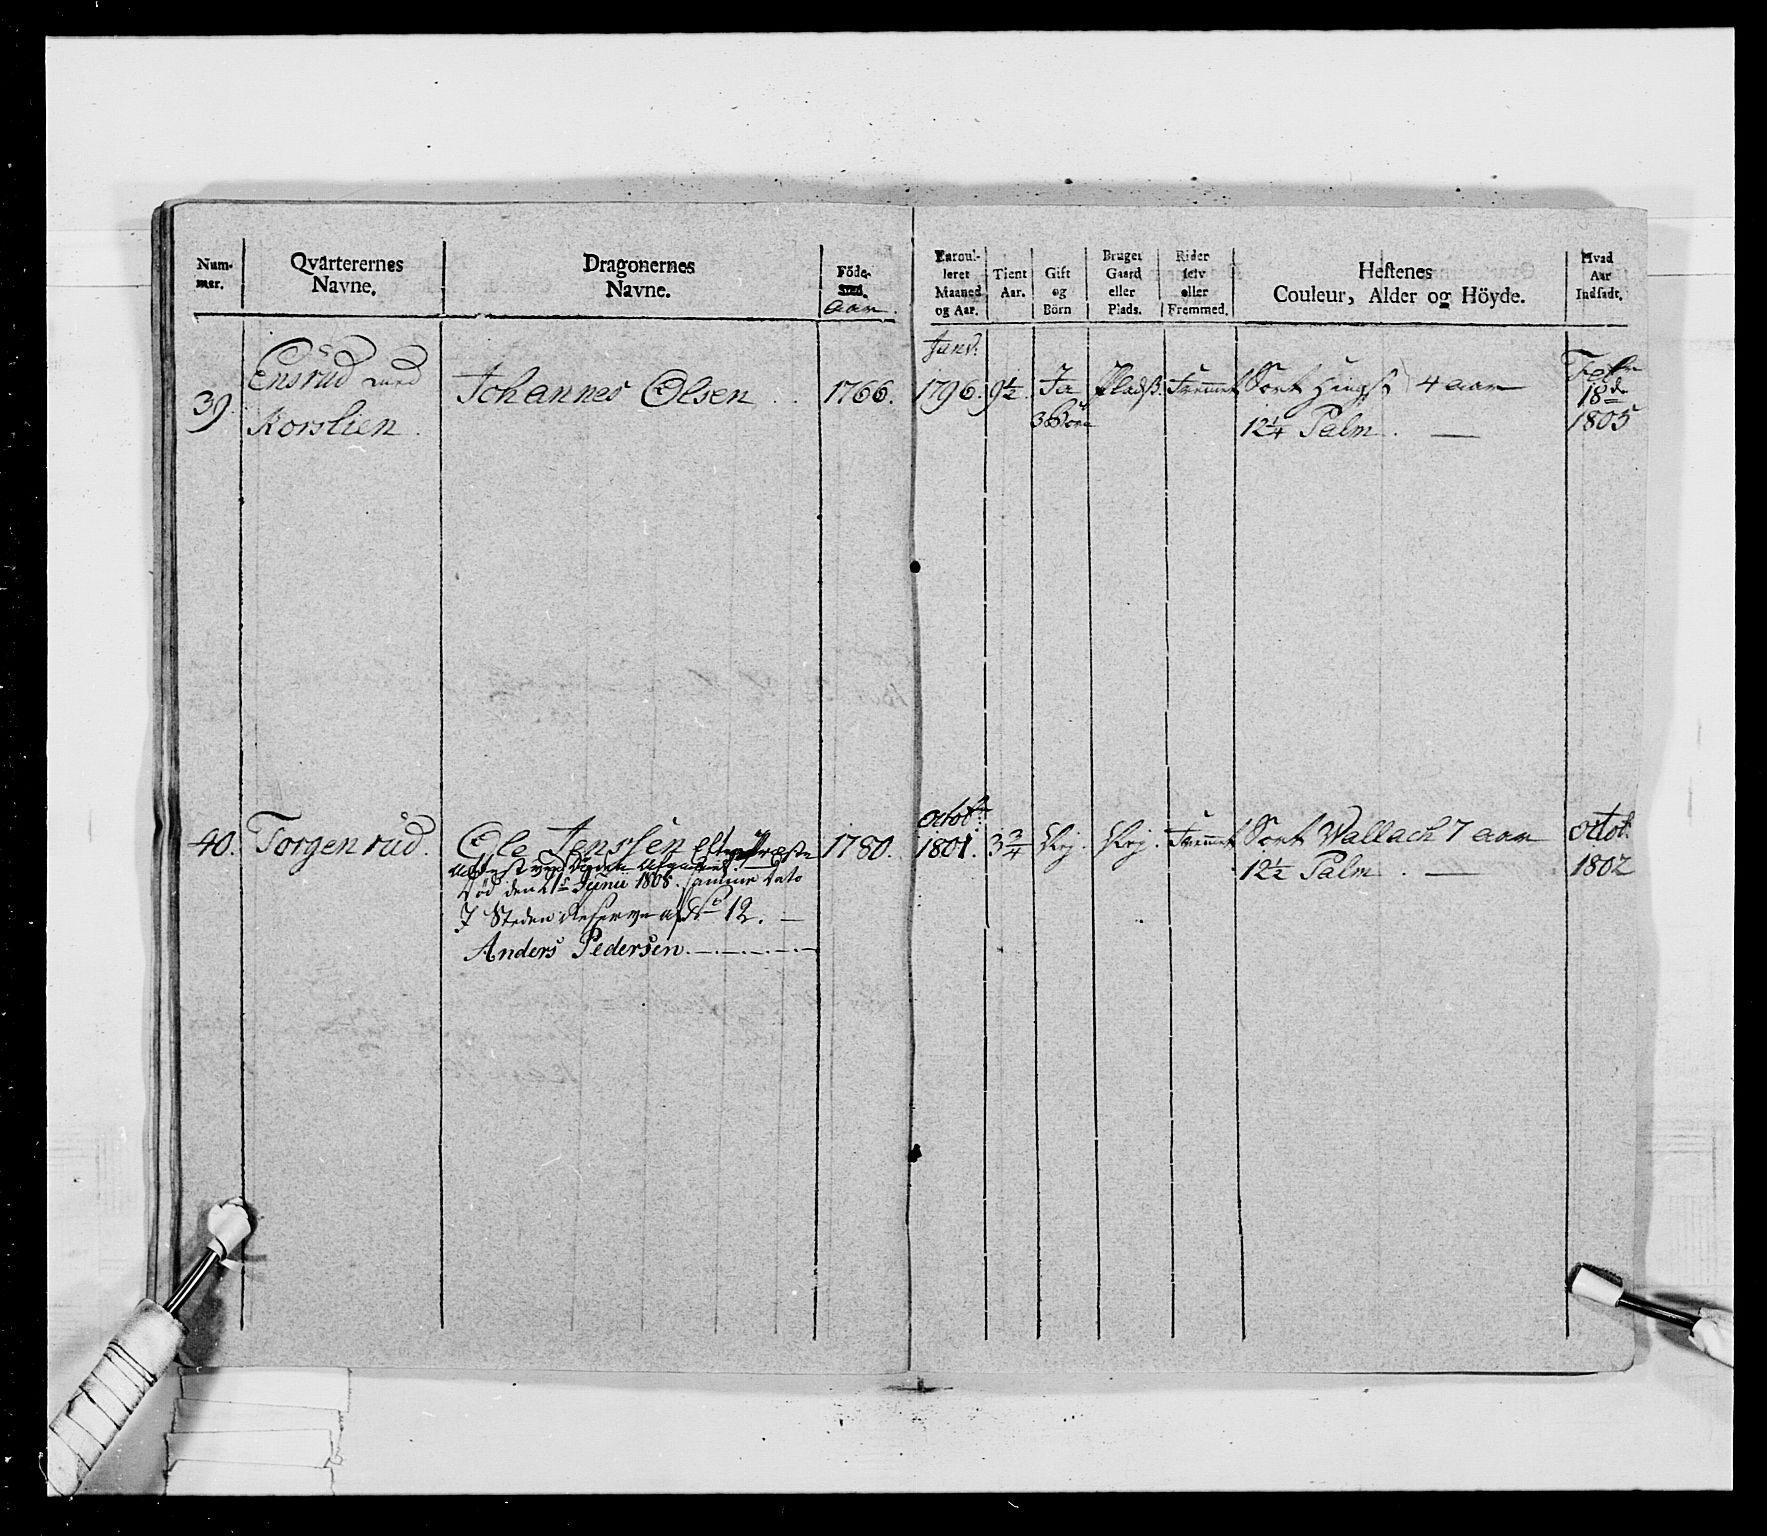 Num-
mer.
Qvärterernes
Navne.
Dragonernes
Navne.
Föde-
Sted.
Aar.
Enroul-
leret
Maaned
og Aar.
Tient
Aar.
Gift
og
Börn
Bruget
Gaard
eller
Plads.
Rider
selv
eller
Fremmed.
Hestenes
Couleur, Alder og Höyde.
Hvad
Aar
Indsadt.
39
Ensrud med
Korslien
Johannes Olsen
1766.
Janv:
1796.
9 1/2
Ja
3 Börn
Pladß.
Fremmet
Sort Hingst 4 aar
12 1/4 Palm. —
Febr
18de
1805
40.
Torgenrud.
Ole Jenslien
Død den 21de Junii 1808. samme Dato
I Steden Reserve No 12. —
Anders Pedersen.
1780.
octobr
1801.
3 3/4
Nej.
Nej.
Fremmet
Sort Wallach 7 aar
12 1/2 Palm. —
octob.
1802